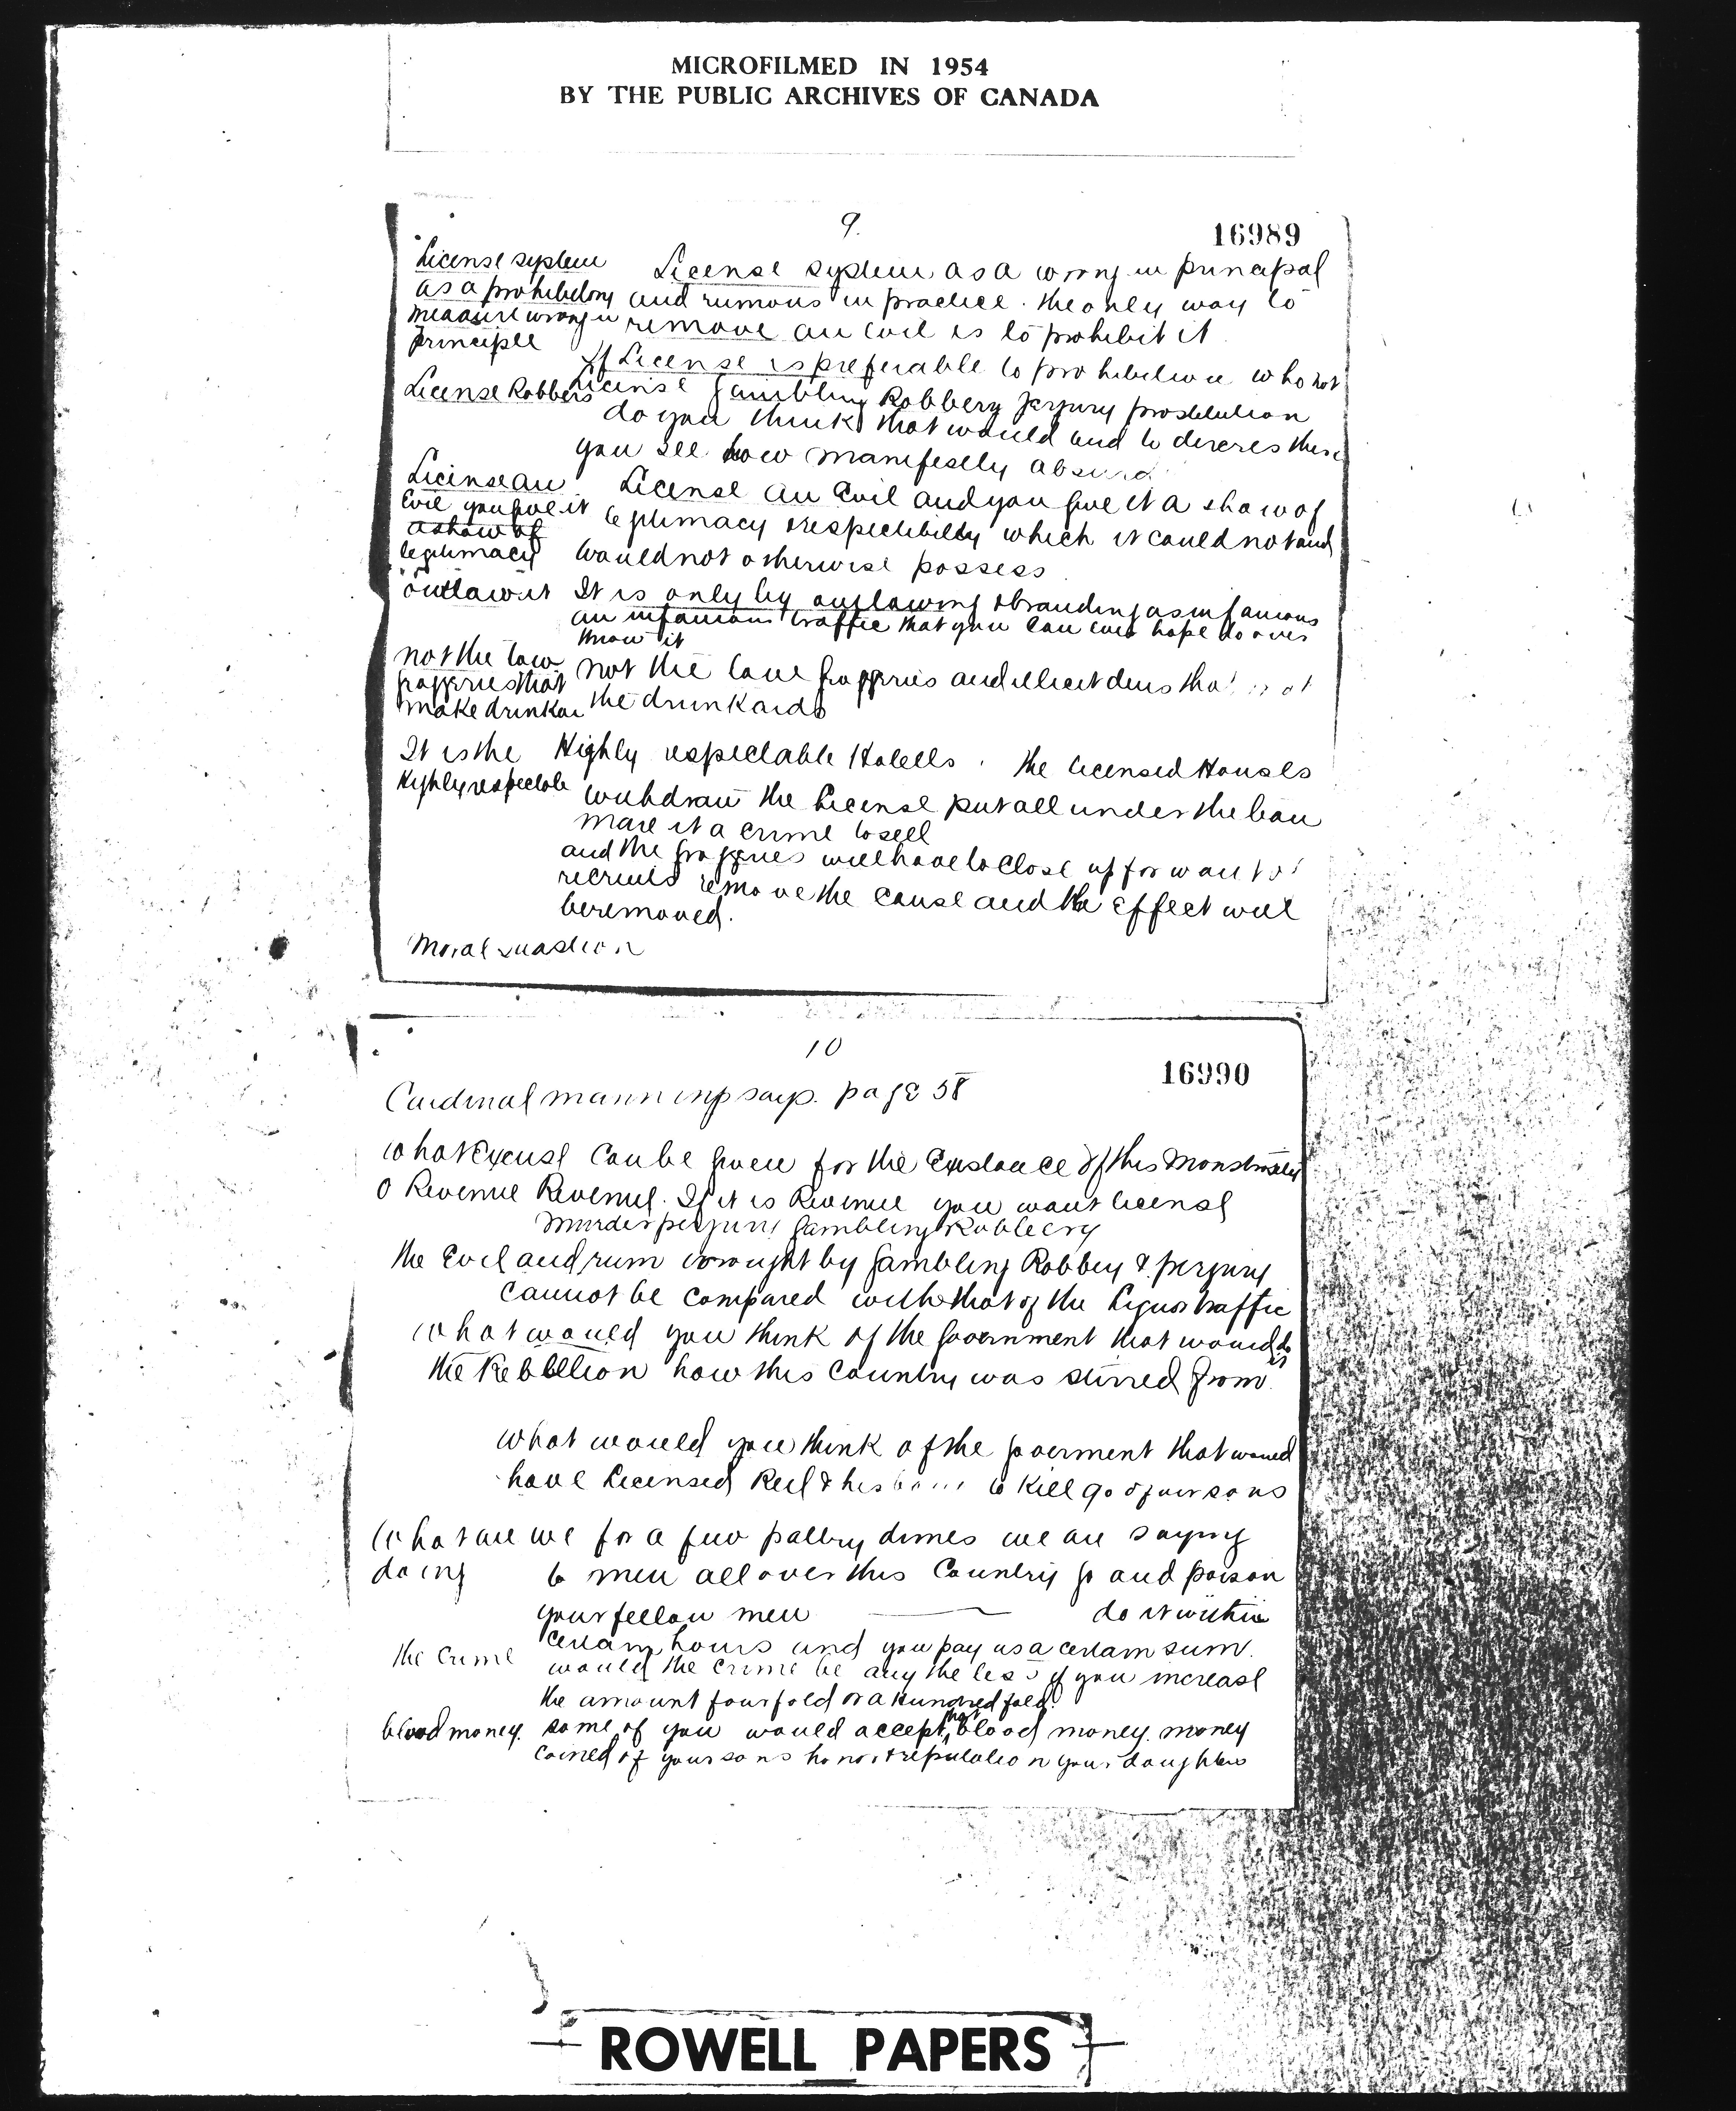 MICROFILMED IN 1954
BY THE PUBLIC ARCHIVES OF CANADA
9.
16989
License system
as a prohibitory
measure wrong in
principle
License system as a wrong in principal
and ruinous in practice. the only way to
remove an evil is to prohibit it
If License is preferable to prohibition who not
License Robbers
License Gambling Robbery perjury prostitution
do you think that would and to these
you see how manifestly absurd
License an
Evil you give it
a show of
legitimacy
License an Evil and you give it a show of
legitimacy & respectibility which it could not and
would not otherwise possess
outlaw it
It is only by outlawing & branding as infamous
an infamous traffic that you can ever hope to over
throw it
not the low
groggeries that
make drunkar
not the low groggeries and illicit dens that
the drunkards
It is the
Highly respectable
Highly respectable Hotells. the licensed Houses
withdraw the License put all under the ban
make it a crime to sell
and the groggeries will have to close up for want of
recruits remove the cause and the effect will
be removed.
Moral suasion
10
16990
Cardinal manning says. page 58
what Excuse can be given for the Existance of this Monstrosity
O Revenue Revenue. If it is Revenue you want license
Murder perjury Gambling Robbery
the Evil and ruin wrought by gambling Robbey & perjury
cannot be compared with that of the Liquor traffic
what would you think of the Government that would
the Rebellion how this country was stirred from
what would you think of the goverment that would
have Licensed Reil & his to kill 90 of our sons
what are we
doing
for a few paltry dimes we are saying
to men all over this Country go and poison
your fellow men — do it within
certain hours and you pay us a certain sum.
the crime
would the crime be any the less if you increase
the amount four fold or a Hundred fold.
blood money.
some of you would accept that blood money. money
coined of your sons honor & reputation your daughters
ROWELL PAPERS